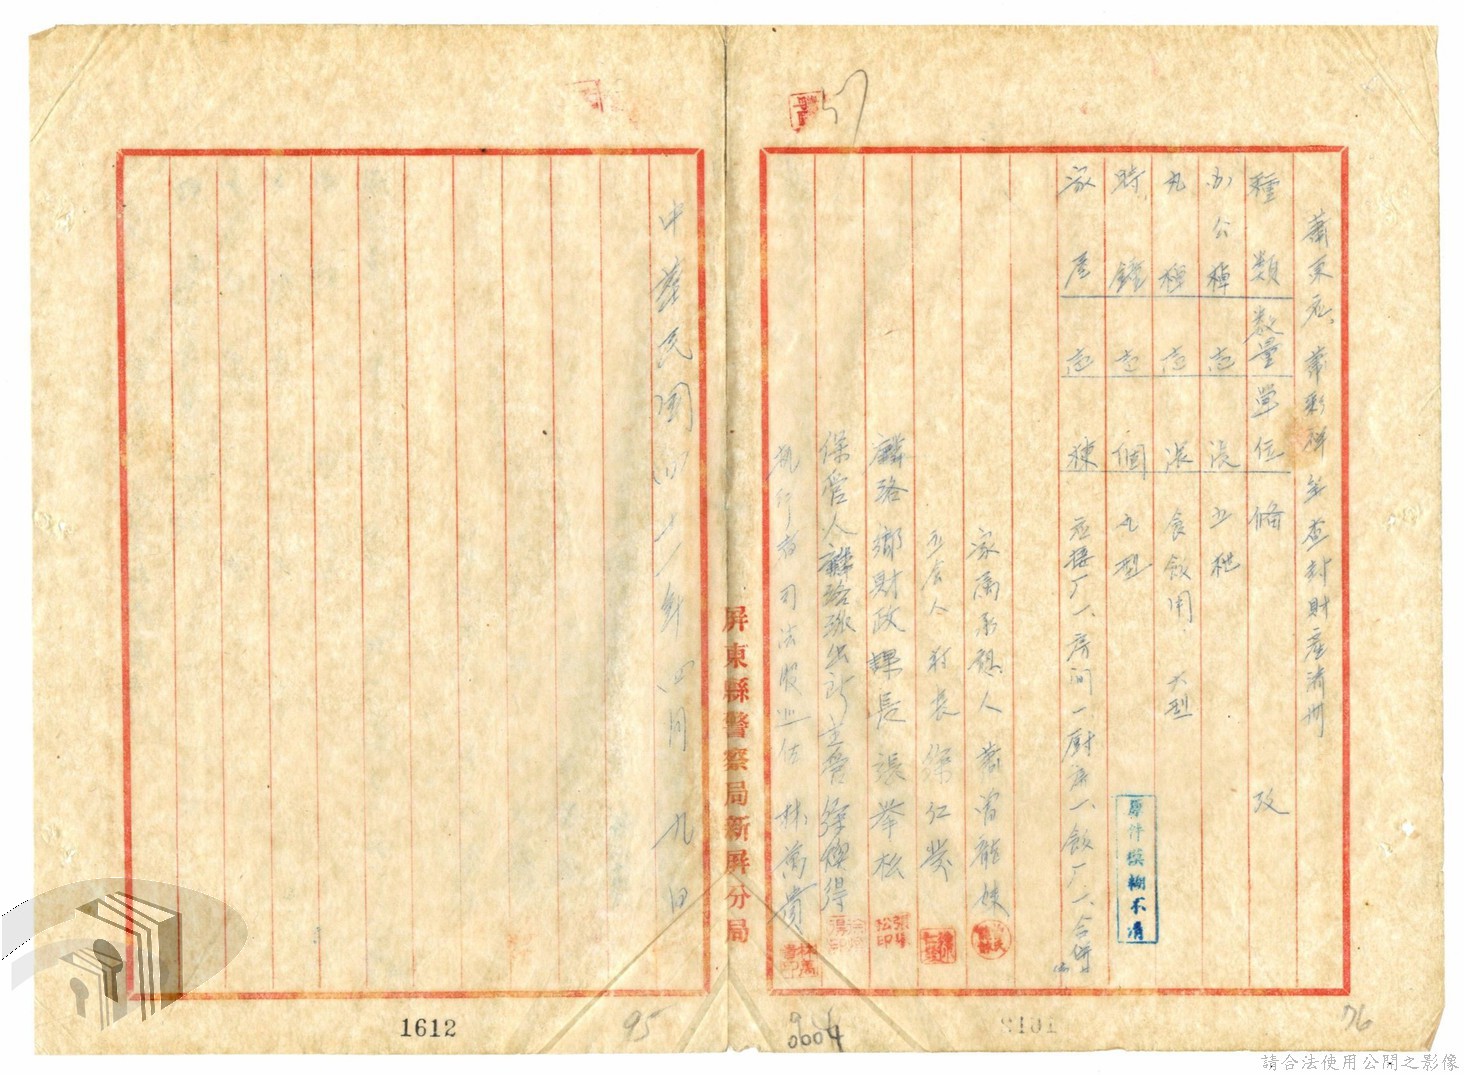 蕭東元、蕭彩祥等查封財產清冊
種類 數量 單位 備 攷
办公棹 壱 張 上秕
丸棹 壱 張 食飯用 大型
時鐘 壱 個 丸型
家屋 壱 棟 应接厂一、房間一、厨房一、飯厂一、合併
家屬承認人 蕭曾龍妹
立会人 村長 徐仁癸
麟洛鄉財政課長 張举松
保管人麟洛派出所主管 徐煥得
執行者 司法股巡佐 林萬貴
屏東縣警察局新屏分局
中華民國四十一年四月九日
原件模糊不清
1612
95
0604
76
請合法使用公開之影像